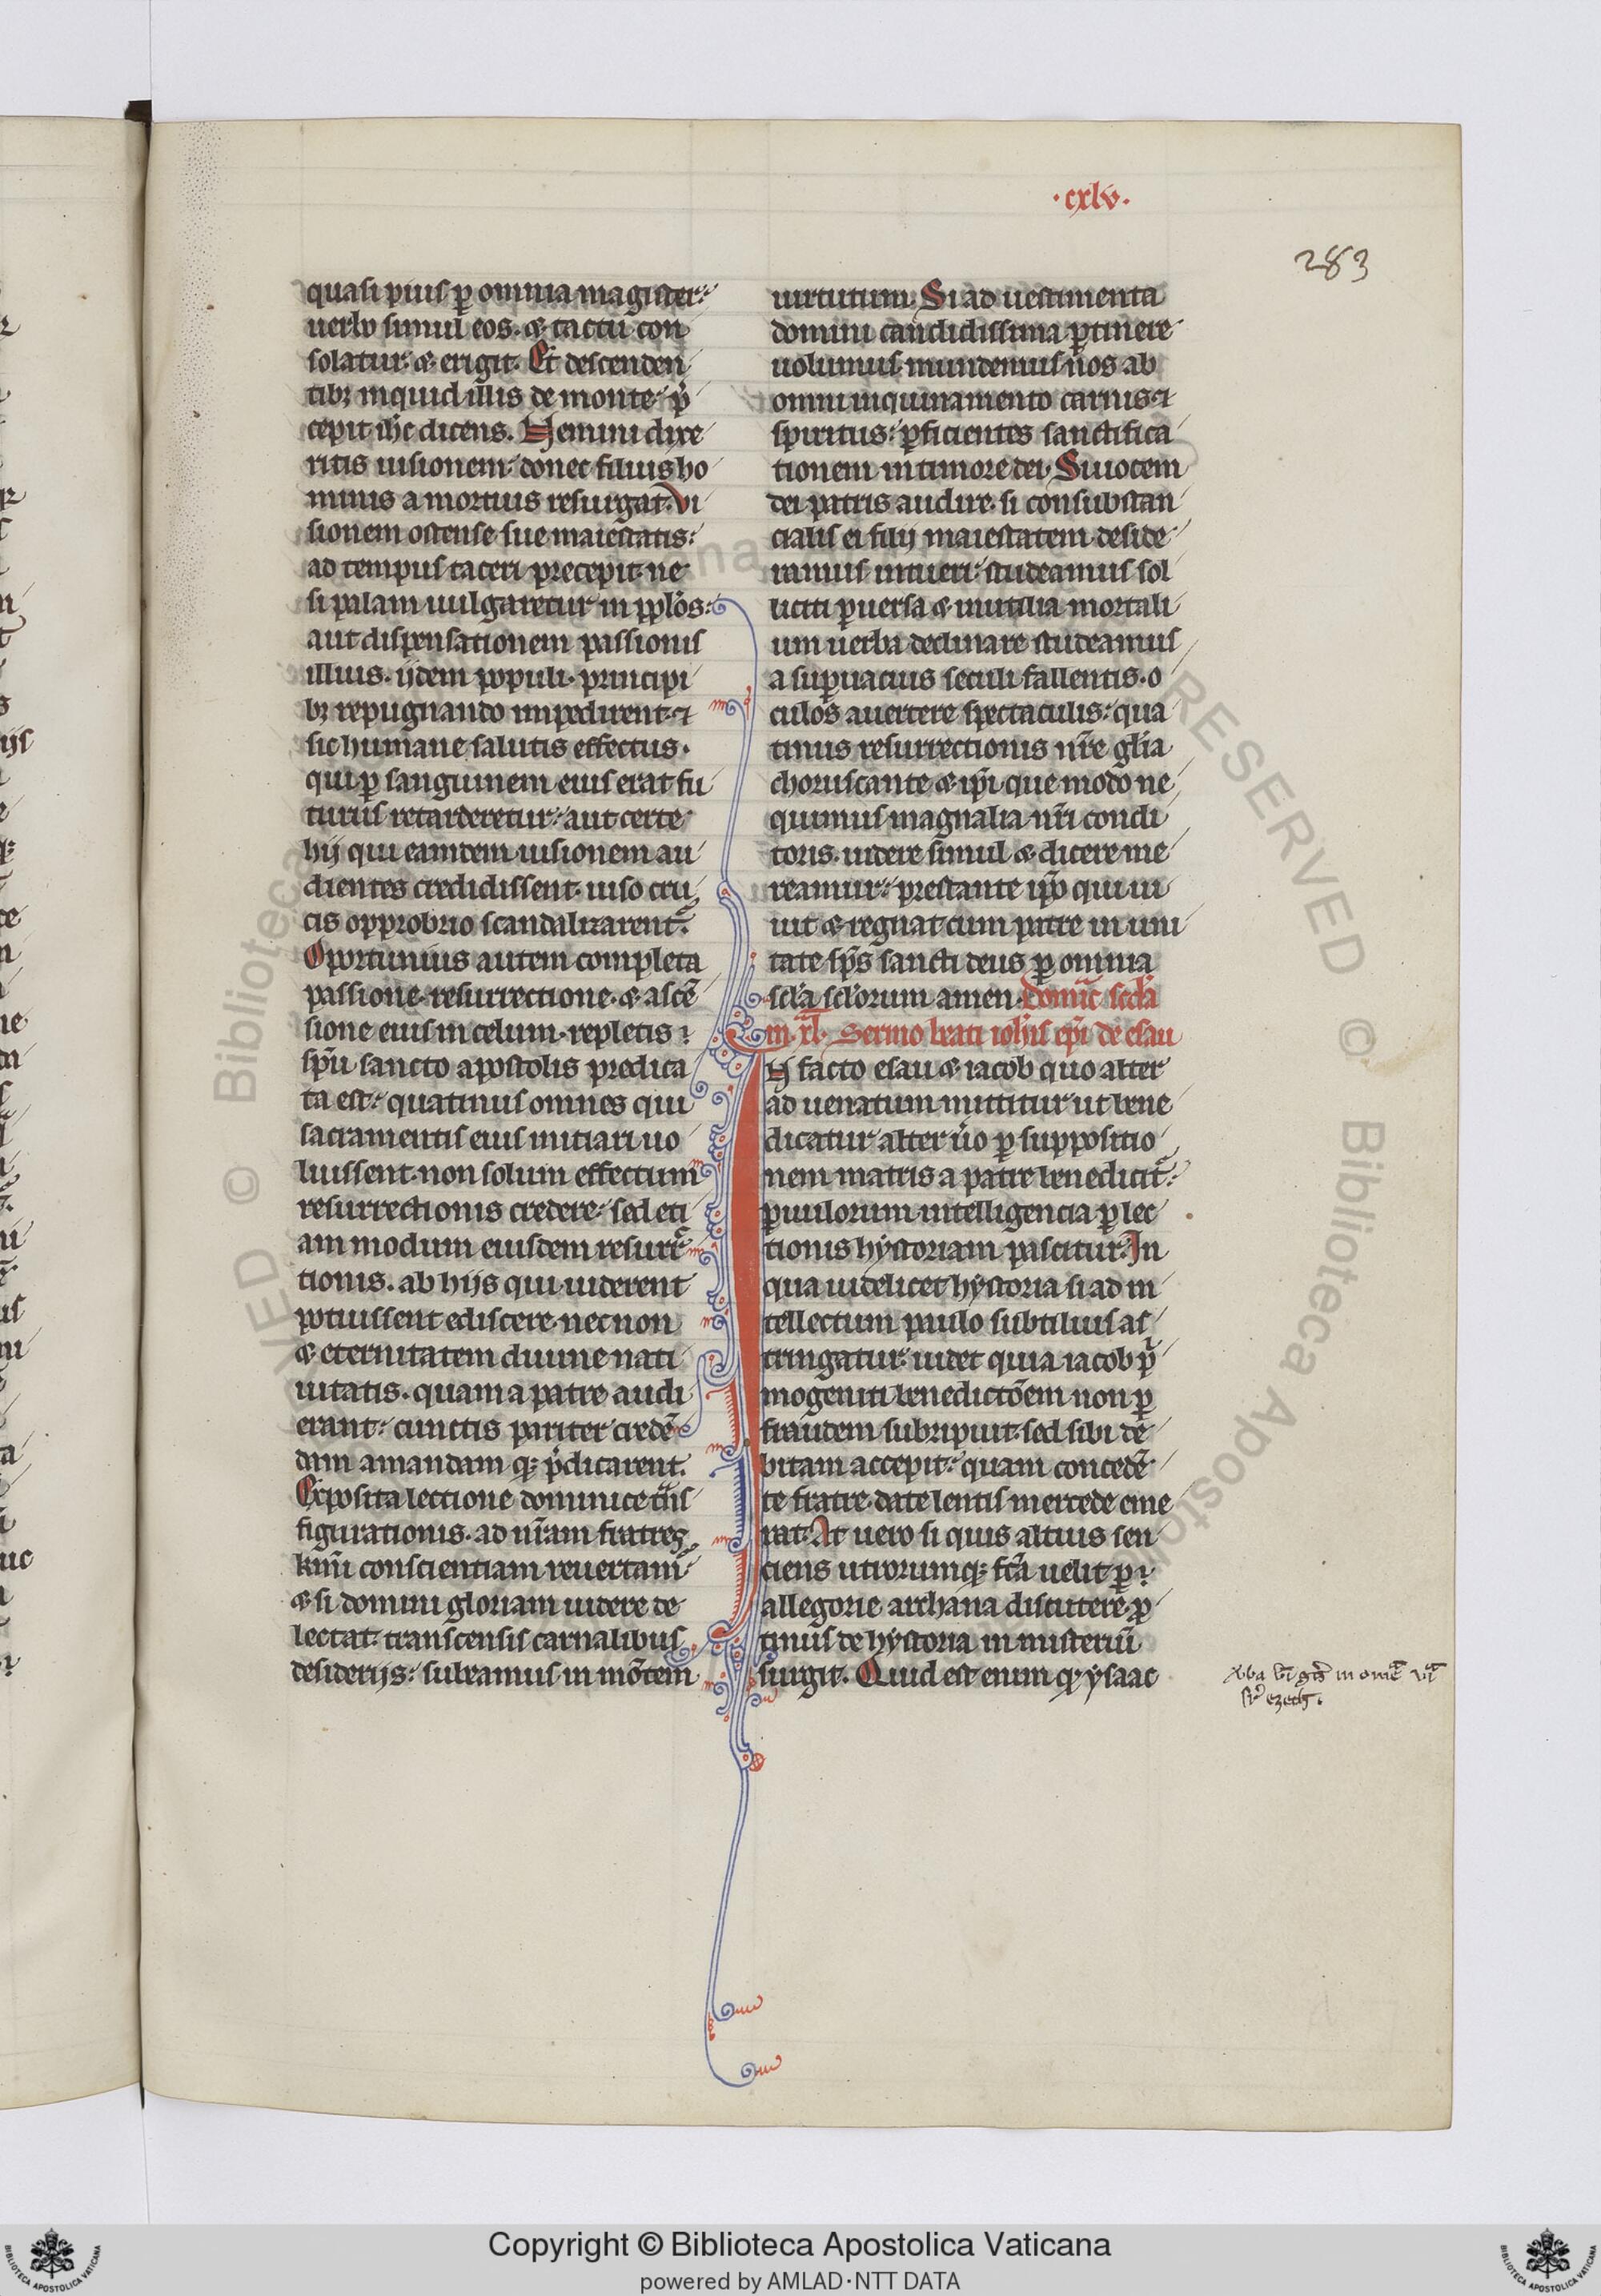 ·cxlv·
283
quasi pius ꝑ omnia magister:
uerbo simul eos. & tactu con
solatur. & erigit. Et descenden
tibꝫ inquid illis de monte: p̄
cepit ih̄c dicens. Nemini dixe
ritis uisionem: donec filius ho
minis a mortuis resurgat. Vi
sionem ostense sue maiestatis:
ad tempus taceri precepit. ne
si palam uulgaretur in pp̄los:
aut dispensationem passionis
illius. ijdem populi. principi
bꝫ repugnando impedirent. ⁊
sic humane salutis effectus.
qui ꝑ sanguinem eius erat fu
turus retarderetur: aut certe
hij qui eamdem uisionem au
dientes credidissent. uiso cru
cis opprobrio scandalizarent᷑.
Oportunius autem completa
passione. resurrectione. & ascē
sione eius in celum. repletis
sp̄u sancto apostolis predica
ta est: quatinus omnes qui
sacramentis eius initiari uo
luissent. non solum effectum
resurrectionis credere: sed eti
am modum eiusdem resurr̄
tionis. ab hijs qui uiderent
potuissent ediscere. necnon
& eternitatem diuine nati
uitatis. quam a patre audi
erant: cunctis pariter credē
dam amandam qꝫ p̄dicarent.
Exposita lectione dominice t̄ns
figurationis. ad nr̄am fratres
km̄i conscientiam reuertam᷑
& si domini gloriam uidere de
lectat: transcensis carnalibus
desiderijs: subeamus in mōtem
uirtutum. Si ad uestimenta
domini candidissima ꝑtinere
uolumus. mundemus nos ab
omni inquinamento carnis ⁊
spiritus: ꝑficientes sanctifica
tionem in timore dei. Si uocem
dei patris audire. si consubstan
cialis ei filij maiestatem deside
ramus intueri: studeamus sol
liciti ꝑuersa & inutilia mortali
um uerba declinare studeamus
a suꝑuacuis seculi fallentis. o
culos auertere spectaculis: qua
tinus resurrectionis nr̄e gl̄ia
choruscante & ip̄i que modo ne
quimus magnalia nr̄i condi
toris. uidere simul & dicere me
reamur: prestante ip̄o qui ui
uit & regnat cum patre in uni
tate sp̄s sancti deus ꝑ omnia
scl̄a scl̄orum amen. Domīc̄ scd̄a
in xl̄. Sermo beati ioh̄is ep̄i de esau
IN facto esau & iacob quo alter
ad uenatum mittitur ut bene
dicatur alter ūo ꝑ suppositio
nem matris a patre benedicit᷑:
ꝑuulorum intelligencia ꝑ lec
tionis hystoriam pascitur. In
qua uidelicet hystoria si ad in
tellectum paulo subtilius as
tringatur: uidet quia iacob p̄
mogeniti benedictōem non ꝑ
fraudem subripuit. sed sibi de
bitam accepit: quam concedē
te fratre. date lentis mercede eme
rat. At uero si quis altius sen
ciens utrorumqꝫ fc̄a uelit ꝑ
allegorie archana discutere. ꝓ
tinus de hystoria in misteriū
surgit. Quid est enim qꝫ ysaac